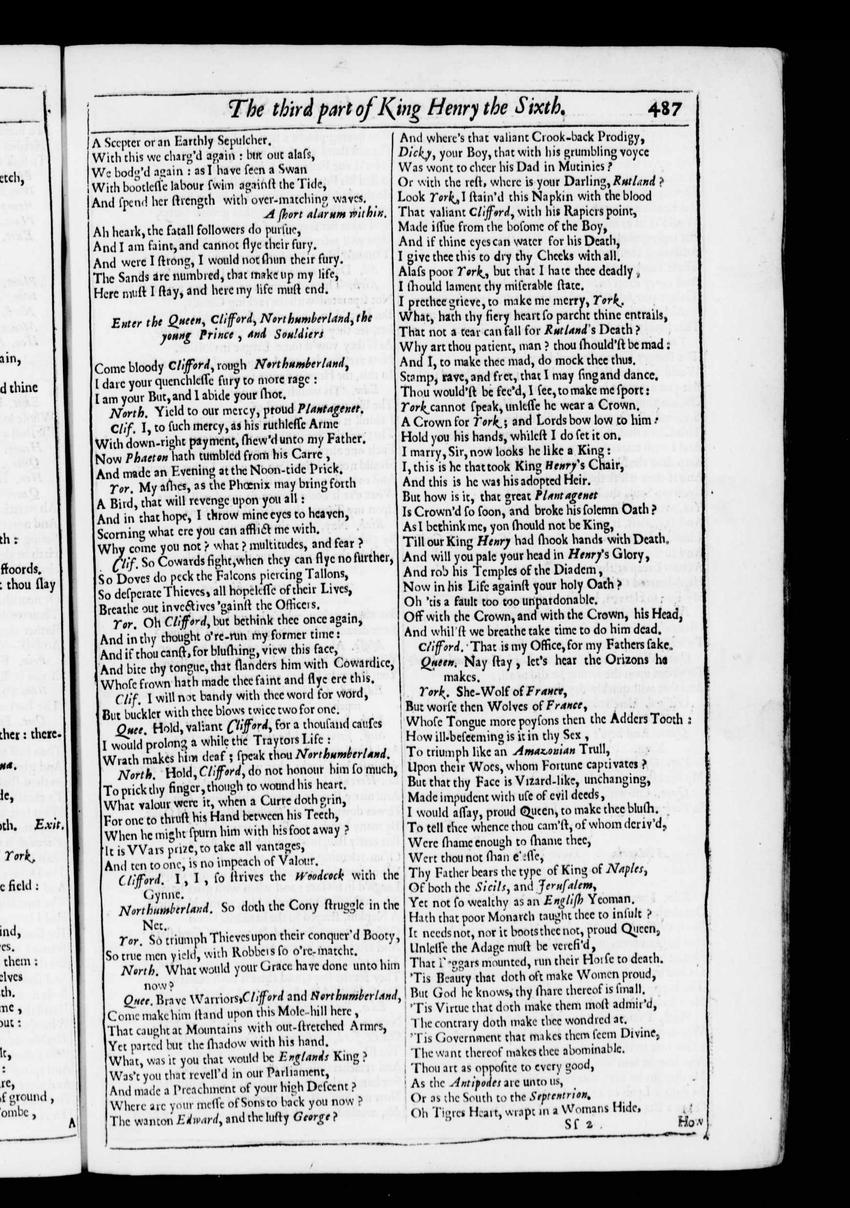 etch,
ain,
d thine
th :
ffoords.
: thou slay
ther : there-
na.
de,
oth. Exit.
York,
e field :
ind,
es.
them :
elves
th.
me ,
out :
lt,
:
re,
of ground ,
ombe ,
A
The third part of King Henry the Sixth. 487
A Scepter or an Earthly Sepulcher.
With this we charg'd again : but out alaſs,
We bodg'd again : as I have ſeen a Swan
With bootleſſe labour ſwim againſt the Tide,
And ſpend her ſtrength with over-matching waves.
A ſhort alarum within.
Ah heark, the fatall followers do purſue,
And I am faint, and cannot flye their fury.
And were I ſtrong, I would not ſhun their fury.
The Sands are numbred, that make up my life,
Here muſt I ſtay, and here my life muſt end.
Enter the Queen, Clifford, Northumberland, the
young Prince , and Souldiers
Come bloody Clifford, rough Northumberland,
I dare your quenchleſſe fury to more rage :
I am your But, and I abide your ſhot.
North. Yield to our mercy, proud Plantagenet.
Clif. I, to ſuch mercy, as his ruthleſſe Arme
With down-right payment, ſhew'd unto my Father.
Now Phaeton hath tumbled from his Carre ,
And made an Evening at the Noon-tide Prick.
Yor. My aſhes, as the Phœnix may bring forth
A Bird, that will revenge upon you all :
And in that hope, I throw mine eyes to heaven,
Scorning what ere you can afflict me with.
Why come you not ? what ? multitudes, and fear ?
Clif. So Cowards fight, when they can flye no further,
So Doves do peck the Falcons piercing Tallons,
So deſperate Thieves, all hopeleſſe of their Lives,
Breathe out invectives 'gainſt the Officers.
Yor. Oh Clifford, but bethink thee once again,
And in thy thought o're-run my former time :
And if thou canſt, for bluſhing, view this face,
And bite thy tongue, that ſlanders him with Cowardice,
Whoſe frown hath made thee faint and flye ere this.
Clif. I will not bandy with thee word for word,
But buckler with thee blows twice two for one.
Quee. Hold, valiant Clifford, for a thouſand cauſes
I would prolong a while the Traytors Life :
Wrath makes him deaf ; ſpeak thou Northumberland.
North. Hold, Clifford, do not honour him ſo much,
To prick thy finger, though to wound his heart.
What valour were it, when a Curre doth grin,
For one to thruſt his Hand between his Teeth,
When he might ſpurn him with his foot away ?
It is VVars prize, to take all vantages,
And ten to one, is no impeach of Valour.
Clifford. I , I , ſo ſtrives the Woodcock with the
Gynne.
Northumberland. So doth the Cony ſtruggle in the
Net.
Yor. So triumph Thieves upon their conquer'd Booty,
So true men yield, with Robbers ſo o're-matcht.
North. What would your Grace have done unto him
now ?
Quee. Brave Warriors, Clifford and Northumberland,
Come make him ſtand upon this Mole-hill here ,
That caught at Mountains with out-ſtretched Armes,
Yet parted but the ſhadow with his hand.
What, was it you that would be Englands King ?
Was't you that revell'd in our Parliament,
And made a Preachment of your high Deſcent ?
Where are your meſſe of Sons to back you now ?
The wanton Edward, and the luſty George ?
And where's that valiant Crook-back Prodigy,
Dicky, your Boy, that with his grumbling voyce
Was wont to cheer his Dad in Mutinies ?
Or with the reſt, where is your Darling, Rutland ?
Look York, I ſtain'd this Napkin with the blood
That valiant Clifford, with his Rapiers point,
Made iſſue from the boſome of the Boy,
And if thine eyes can water for his Death,
I give thee this to dry thy Cheeks with all.
Alaſs poor York, but that I hate thee deadly ,
I ſhould lament thy miſerable ſtate.
I prethee grieve, to make me merry, York.
What, hath thy fiery heart ſo parcht thine entrails,
That not a tear can fall for Rutland's Death ?
Why art thou patient, man ? thou ſhould'ſt be mad :
And I, to make thee mad, do mock thee thus.
Stamp, rave, and fret, that I may ſing and dance.
Thou would'ſt be fee'd, I ſee, to make me ſport :
York cannot ſpeak, unleſſe he wear a Crown.
A Crown for York ; and Lords bow low to him :
Hold you his hands, whileſt I do ſet it on.
I marry, Sir, now looks he like a King :
I, this is he that took King Henry's Chair,
And this is he was his adopted Heir.
But how is it, that great Plantagenet
Is Crown'd ſo ſoon, and broke his ſolemn Oath ?
As I bethink me, you ſhould not be King,
Till our King Henry had ſhook hands with Death.
And will you pale your head in Henry's Glory,
And rob his Temples of the Diadem ,
Now in his Life againſt your holy Oath ?
Oh 'tis a fault too too unpardonable.
Off with the Crown, and with the Crown, his Head,
And whil'ſt we breathe take time to do him dead.
Clifford. That is my Office, for my Fathers ſake.
Queen. Nay ſtay , let's hear the Orizons he
makes.
York. She-Wolf of France,
But worſe then Wolves of France,
Whoſe Tongue more poyſons then the Adders Tooth :
How ill-beſeeming is it in thy Sex ,
To triumph like an Amazonian Trull,
Upon their Woes, whom Fortune captivates ?
But that thy Face is Vizard-like, unchanging,
Made impudent with uſe of evil deeds,
I would aſſay, proud Queen, to make thee bluſh.
To tell thee whence thou cam'ſt, of whom deriv'd,
Were ſhame enough to ſhame thee,
Wert thou not ſhameleſſe,
Thy Father bears the type of King of Naples,
Of both the Sicils, and Jeruſalem,
Yet not ſo wealthy as an Engliſh Yeoman.
Hath that poor Monarch taught thee to inſult ?
It needs not, nor it boots thee not, proud Queen,
Unleſſe the Adage muſt be verefi'd,
That Beggars mounted, run their Horſe to death.
'Tis Beauty that doth oft make Women proud,
But God he knows, thy ſhare thereof is ſmall.
'Tis Virtue that doth make them moſt admir'd,
The contrary doth make thee wondred at.
'Tis Government that makes them ſeem Divine,
The want thereof makes thee abominable.
Thou art as oppoſite to every good,
As the Antipodes are unto us,
Or as the South to the Septentrion.
Oh Tigres Heart, wrapt in a Womans Hide,
Sſ 2 How